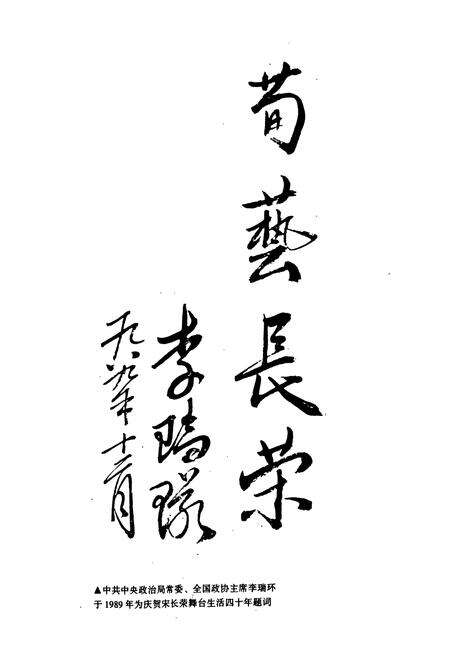 荀藝長荣
李瑞环
一九八九年十二月
▲中共中央政治局常委、全国政协主席李瑞环
于1989年为庆贺宋长荣舞台生活四十年题词